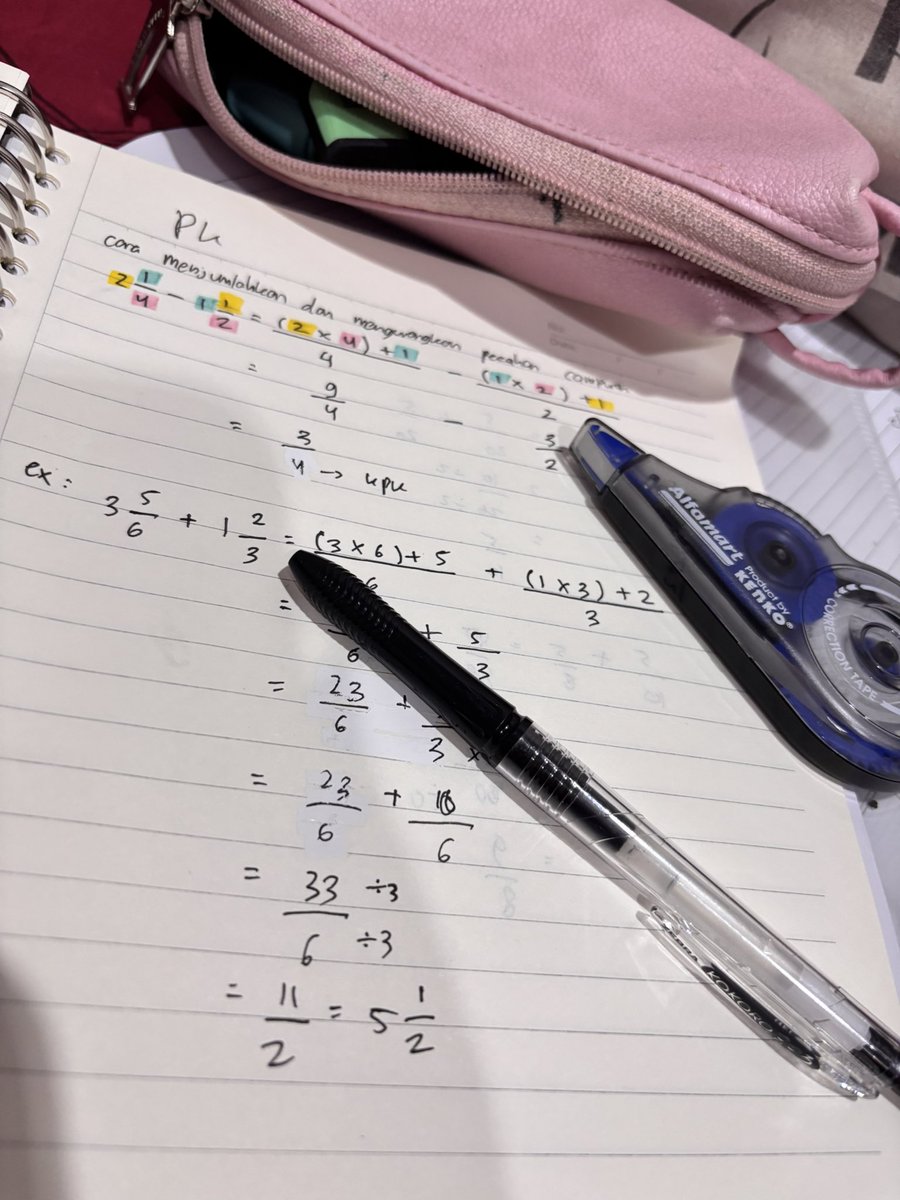 PK
cara menjumlahkan dan mengurangkan pecahan campuran
2 1/4 - 1 1/2 = (2 x 4) + 1 / 4 - (1 x 2) + 1 / 2
= 9/4 - 3/2
= 3/4 → KPK
ex: 3 5/6 + 1 2/3 = (3 x 6) + 5 / 6 + (1 x 3) + 2 / 3
= /6 + 5/3
= 23/6 + /3 x
= 23/6 + 10/6
= 33/6 ÷3 ÷3
= 11/2 = 5 1/2
Alfamart
Product by
KENKO®
CORRECTION TAPE
KOKORO